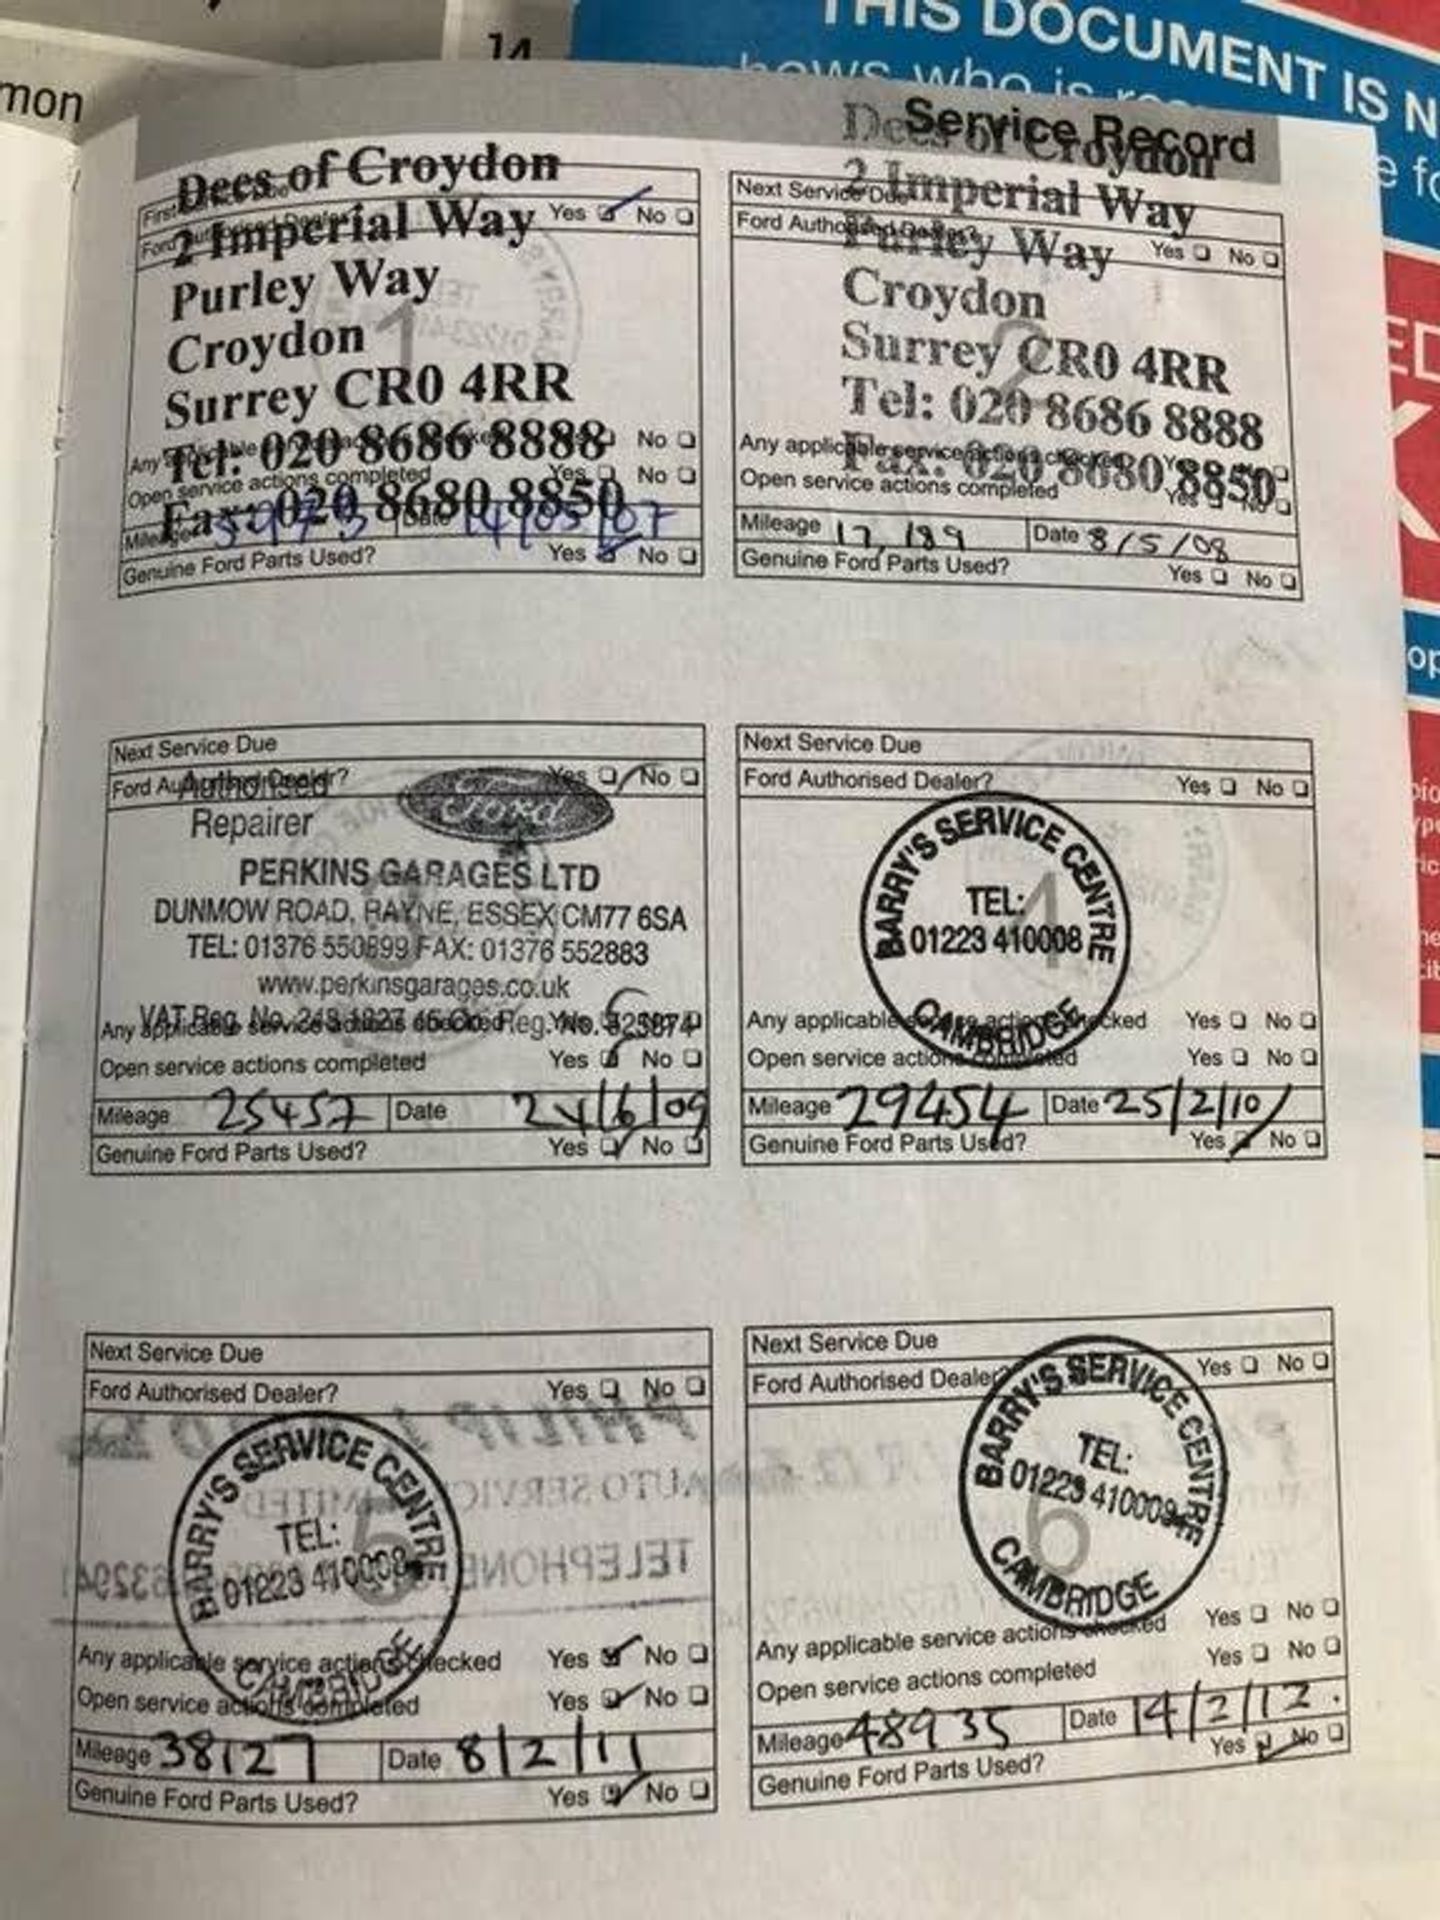 mon
14
THIS DOCUMENT IS N
shows who is
Service Record
Dees of Croydon
2 Imperial Way
Purley Way
Croydon
Surrey CR0 4RR
Tel: 020 8686 8888
Fax: 020 8680 8850
Yes No
Any applicable No
Open service actions completed Yes No
Mileage Date 14/05/07
Genuine Ford Parts Used? Yes No
Dees of Croydon
2 Imperial Way
Purley Way
Croydon
Surrey CR0 4RR
Tel: 020 8686 8888
Fax: 020 8680 8850
Next Service Due
Ford Authorised Dealer? Yes No
2
Any applicable service actions checked
Open service actions completed Yes No
Mileage 17,189 Date 8/5/08
Genuine Ford Parts Used? Yes No
Next Service Due
Ford Authorised Dealer? Yes No
Authorised
Repairer
Ford
PERKINS GARAGES LTD
DUNMOW ROAD, RAYNE, ESSEX CM77 6SA
TEL: 01376 550899 FAX: 01376 552883
www.perkinsgarages.co.uk
VAT Reg. No.
Any applicable service actions checked
Open service actions completed Yes No
Mileage 25457 Date 24/6/09
Genuine Ford Parts Used? Yes No
Next Service Due
Ford Authorised Dealer? Yes No
BARRY'S SERVICE CENTRE
TEL:
01223 410008
CAMBRIDGE
4
Any applicable service actions checked Yes No
Open service actions completed Yes No
Mileage 29454 Date 25/2/10
Genuine Ford Parts Used? Yes No
Next Service Due
Ford Authorised Dealer? Yes No
BARRY'S SERVICE CENTRE
TEL:
01223 410008
CAMBRIDGE
5
Any applicable service actions checked Yes No
Open service actions completed Yes No
Mileage 38127 Date 8/2/11
Genuine Ford Parts Used? Yes No
Next Service Due
Ford Authorised Dealer? Yes No
BARRY'S SERVICE CENTRE
TEL:
01223 410008
CAMBRIDGE
6
Any applicable service actions checked Yes No
Open service actions completed Yes No
Mileage 48935 Date 14/2/12.
Genuine Ford Parts Used? Yes No